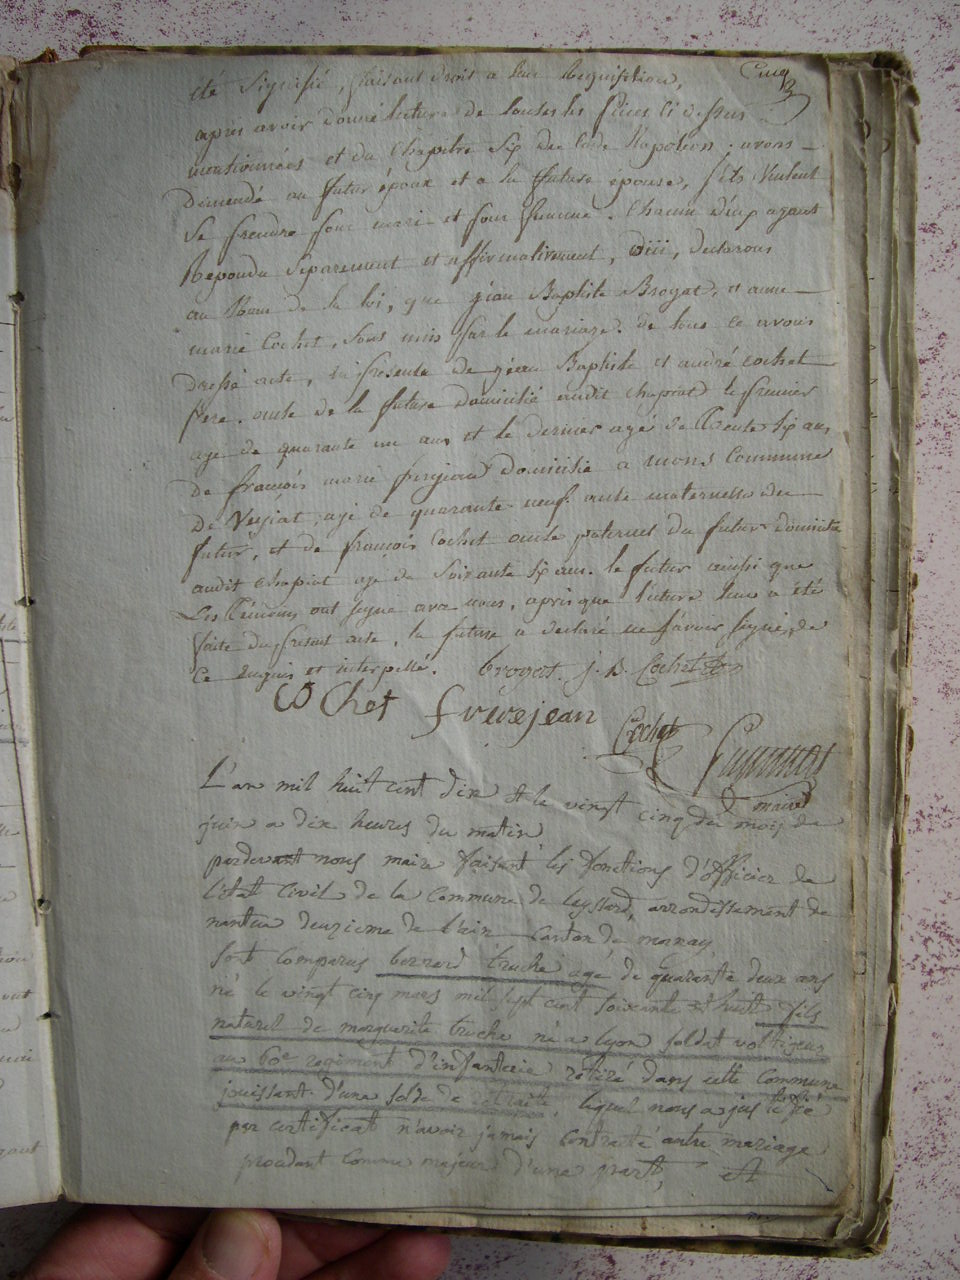 Cinq
été Signifié, faisant droit a leur Requisition,
apres avoir donné lecture de toutes les pieces ci dessus
mentionnées et du Chapitre Six du Code Napoleon. avons
demandé au futur époux et a la future epouse, s'ils veulent
Se prendre pour mari et pour femme. Chacun d'eux ayant
Repondu Separement et affirmativement, oüi, declarons
au Nom de la loi, que jean Baptiste Brogat, et anne
marie Cochet, Sont unis par le mariage. de tous ce avons
dressé acte, en presence de jean Baptiste et andré cochet
pere. oncle de la future domicilié audit Chapiat le premier
agé de quarante un ans et le dernier agé de Trente Six ans
de françois marie domicilié a mons Commune
De agé de quarante neuf. oncle maternelle du
futur, et de françois Cochet oncle paternel du futur domicilié
audit Chapiat agé de Soixante Six ans. le futur ainsi que
Les Témoins ont Signé avec nous, apres que lecture leur a été
faite du present acte, la future a declaré ne savoir signé, de
Ce enquis et interpellé. brogat. j. B. Cochet
COChet frerejean
Cochet
maire
L'an mil huit cent dix et le vingt cinq du mois de
juin a dix heures du matin
pardevant nous maire faisant les fonctions d'officier de
l'état Civil de la Commune de Leyssard, arrondissement de
nantua deuzieme de l'ain Canton de
sont comparus bernard truche agé de quarante deux ans
né le vingt cinq mars mil sept cent soixante et huit fils
naturel de marguerite truche né a lyon soldat voltigeur
au 60e regiment d'infanterie retiré dans cette commune
jouissant d'une solde de retraite, lequel nous a justifié
par certificat n'avoir jamais Contracté autre mariage
procédant comme majeur d'une part, Et